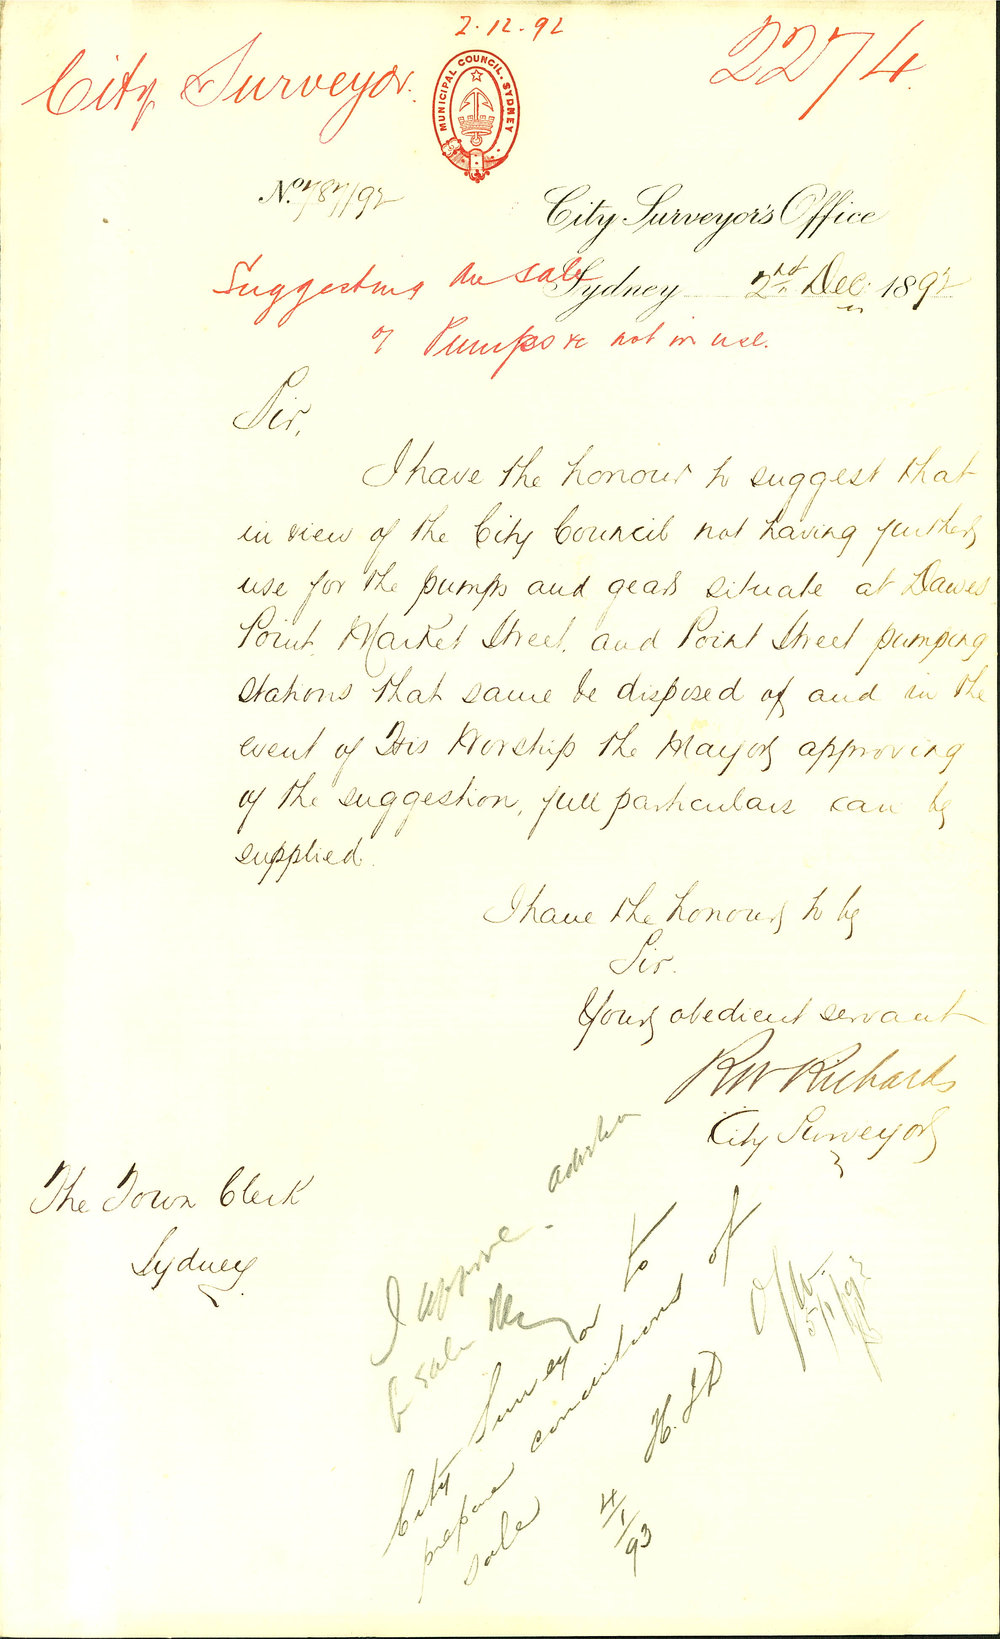 2.12.92
City Surveyor.
2274
MUNICIPAL COUNCIL. SYDNEY
No. 787/92
City Surveyor's Office
Sydney 2nd Dec. 1892
Suggesting the sale
of Pumps &c not in use.
Sir,
I have the honour to suggest that
in view of the City Council not having further
use for the pumps and gear situate at Dawes
Point, Market Street, and Point Street pumping
stations that same be disposed of and in the
event of His Worship the Mayor approving
of the suggestion, full particulars can be
supplied.
I have the honour to be
Sir.
Your obedient servant
RW Richards
City Surveyor
The Town Clerk
Sydney
I approve.
sale
City Surveyor to
prepare conditions of
sale
4/1/93